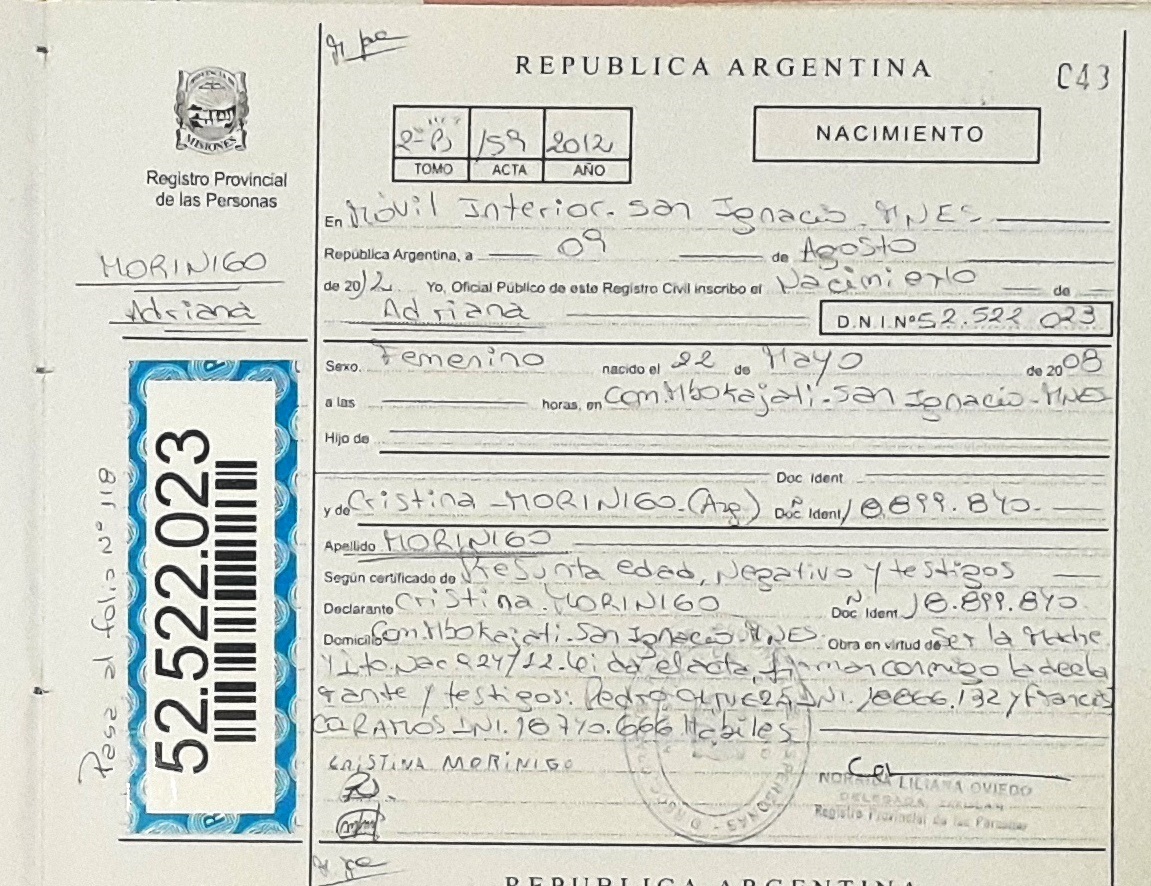 REPUBLICA ARGENTINA
C43
PROVINCIA DE
MISIONES
Registro Provincial
de las Personas
MORINIGO
Adriana
52.522.023
Pasa al folio n° 118
2-B 159 2012
TOMO ACTA AÑO
NACIMIENTO
En Móvil Interior. San Ignacio. MNES
República Argentina, a 09 de Agosto
de 2012. Yo, Oficial Público de este Registro Civil inscribo el Nacimiento de
Adriana D.N.I.Nº 52.522 023
Sexo. Femenino nacido el 22 de Mayo de 2008
a las horas, en Com.Mbokajati. San Ignacio. MNES
Hijo de
Doc Ident
y de Cristina MORINIGO.(Arg) Doc Ident 18.899.840.
Apellido MORINIGO
Según certificado de Presunta edad, Negativo y testigos
Declarante Cristina MORINIGO Doc Ident 18.899.840.
Domicilio Com.Mbokajati. San Ignacio. MNES. Obra en virtud de Ser la Madre
y Lda el acta, firman conmigo la decla
rante y testigos: Pedro DNI. 18866.132 y Francis
CO RAMOS DNI. 18770.666 Habiles
CRISTINA MORINIGO
NORAIDA LILIANA OVIEDO
DELEGADA
Registro Provincial de las Personas
REPUBLICA ARGENTINA